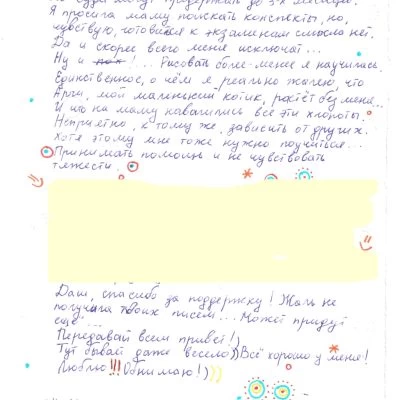 продержать до 3-х месяцев.
Я просила маму поискать конспекты, но,
чувствую, готовился к экзаменам смысла нет.
Да и скорее всего меня исключат...
Ну и пох!... Рисовать более-менее я научилась.
Единственное, о чём я реально жалею, что
Арчи, мой маленький котик, растёт без меня...
И что на маму навалились все эти хлопоты.
Неприятно, к тому же, зависить от других.
Хотя этому мне тоже нужно поучиться...
Принимать помощь и не чувствовать
тяжести.
Даш, спасибо за поддержку! Жаль не
получила твоих писем... Может придут
ещё...
Передавай всем привет!)
Тут бывает даже весело))Всё хорошо у меня!
Люблю!!! Обнимаю!)))